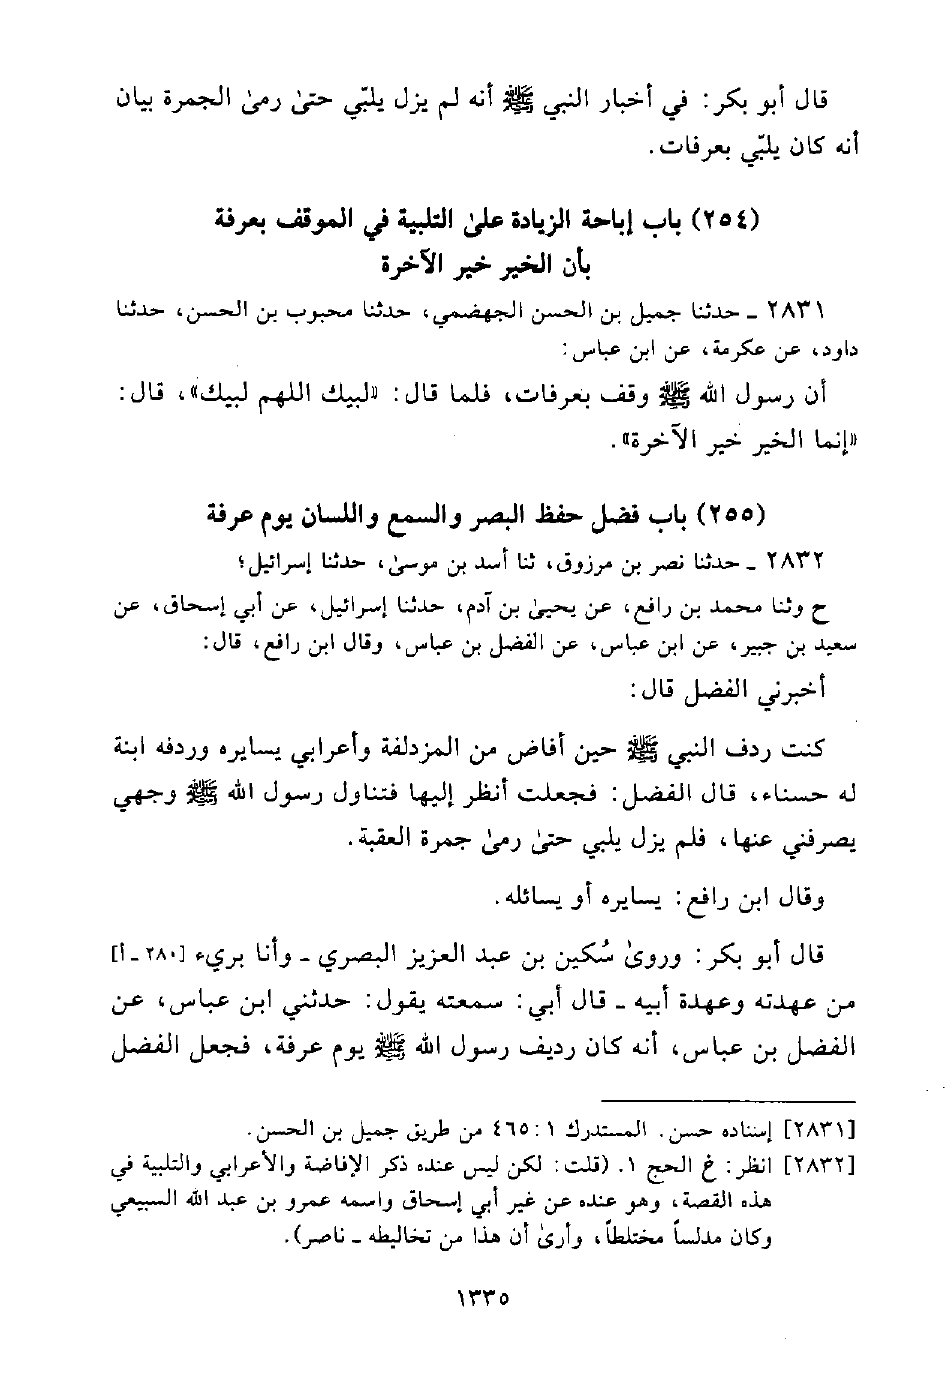 قال أبو بكر: في أخبار النبي ﷺ أنه لم يزل يلبّي حتىٰ رمىٰ الجمرة بيان
أنه كان يلبّي بعرفات.
(٢٥٤) باب إباحة الزيادة علىٰ التلبية في الموقف بعرفة
بأن الخير خير الآخرة
٢٨٣١ ـ حدثنا جميل بن الحسن الجهضمي، حدثنا محبوب بن الحسن، حدثنا
داود، عن عكرمة، عن ابن عباس:
أن رسول الله ﷺ وقف بعرفات، فلما قال: «لبيك اللهم لبيك»، قال:
«إنما الخير خير الآخرة».
(٢٥٥) باب فضل حفظ البصر والسمع واللسان يوم عرفة
٢٨٣٢ ـ حدثنا نصر بن مرزوق، ثنا أسد بن موسىٰ، حدثنا إسرائيل؛
ح وثنا محمد بن رافع، عن يحيىٰ بن آدم، حدثنا إسرائيل، عن أبي إسحاق، عن
سعيد بن جبير، عن ابن عباس، عن الفضل بن عباس، وقال ابن رافع، قال:
أخبرني الفضل قال:
كنت ردف النبي ﷺ حين أفاض من المزدلفة وأعرابي يسايره وردفه ابنة
له حسناء، قال الفضل: فجعلت أنظر إليها فتناول رسول الله ﷺ وجهي
يصرفني عنها، فلم يزل يلبي حتىٰ رمىٰ جمرة العقبة.
وقال ابن رافع: يسايره أو يسائله.
قال أبو بكر: وروىٰ سُكين بن عبد العزيز البصري ـ وأنا بريء [٢٨٠ ـ أ]
من عهدته وعهدة أبيه ـ قال أبي: سمعته يقول: حدثني ابن عباس، عن
الفضل بن عباس، أنه كان رديف رسول الله ﷺ يوم عرفة، فجعل الفضل
[٢٨٣١] إسناده حسن. المستدرك ١: ٤٦٥ من طريق جميل بن الحسن.
[٢٨٣٢] انظر: خ الحج ١. (قلت: لكن ليس عنده ذكر الإفاضة والأعرابي والتلبية في
هذه القصة، وهو عنده عن غير أبي إسحاق واسمه عمرو بن عبد الله السبيعي
وكان مدلساً مختلطاً، وأرىٰ أن هذا من تخاليطه ـ ناصر).
١٣٣٥